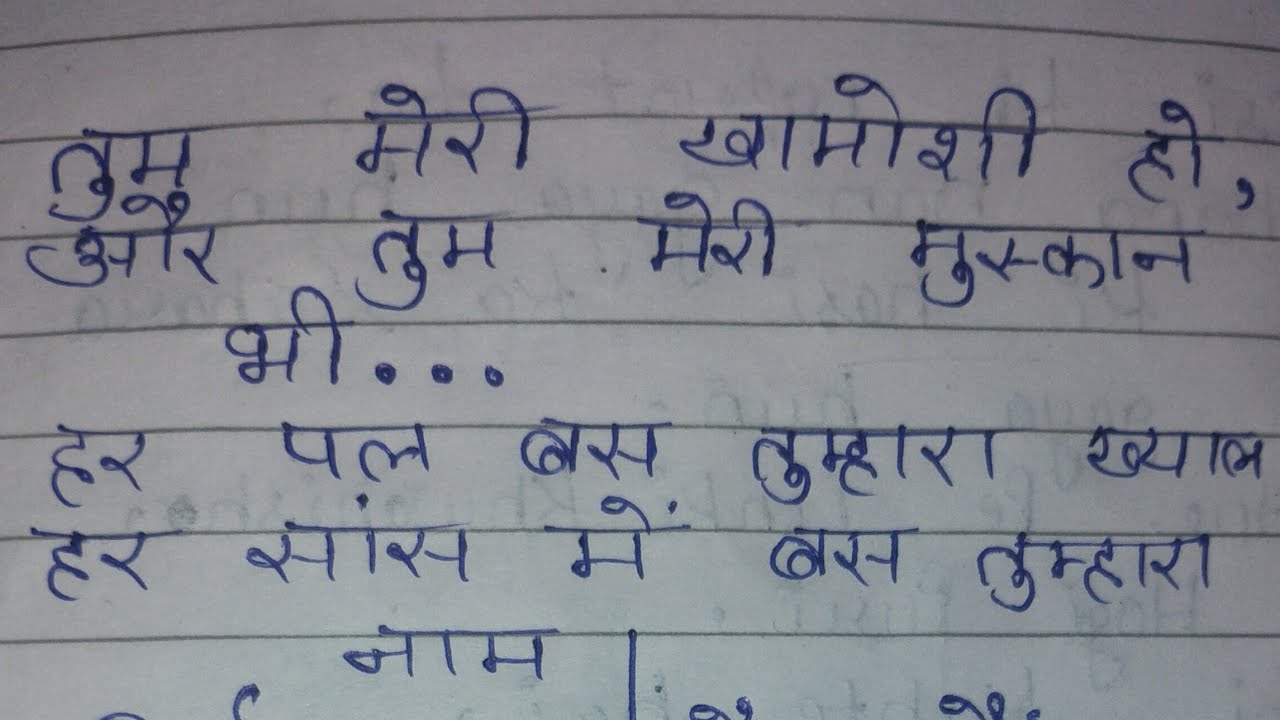 तुम मेरी खामोशी हो,
और तुम मेरी मुस्कान
भी...
हर पल बस तुम्हारा ख्याल
हर सांस में बस तुम्हारा
नाम।